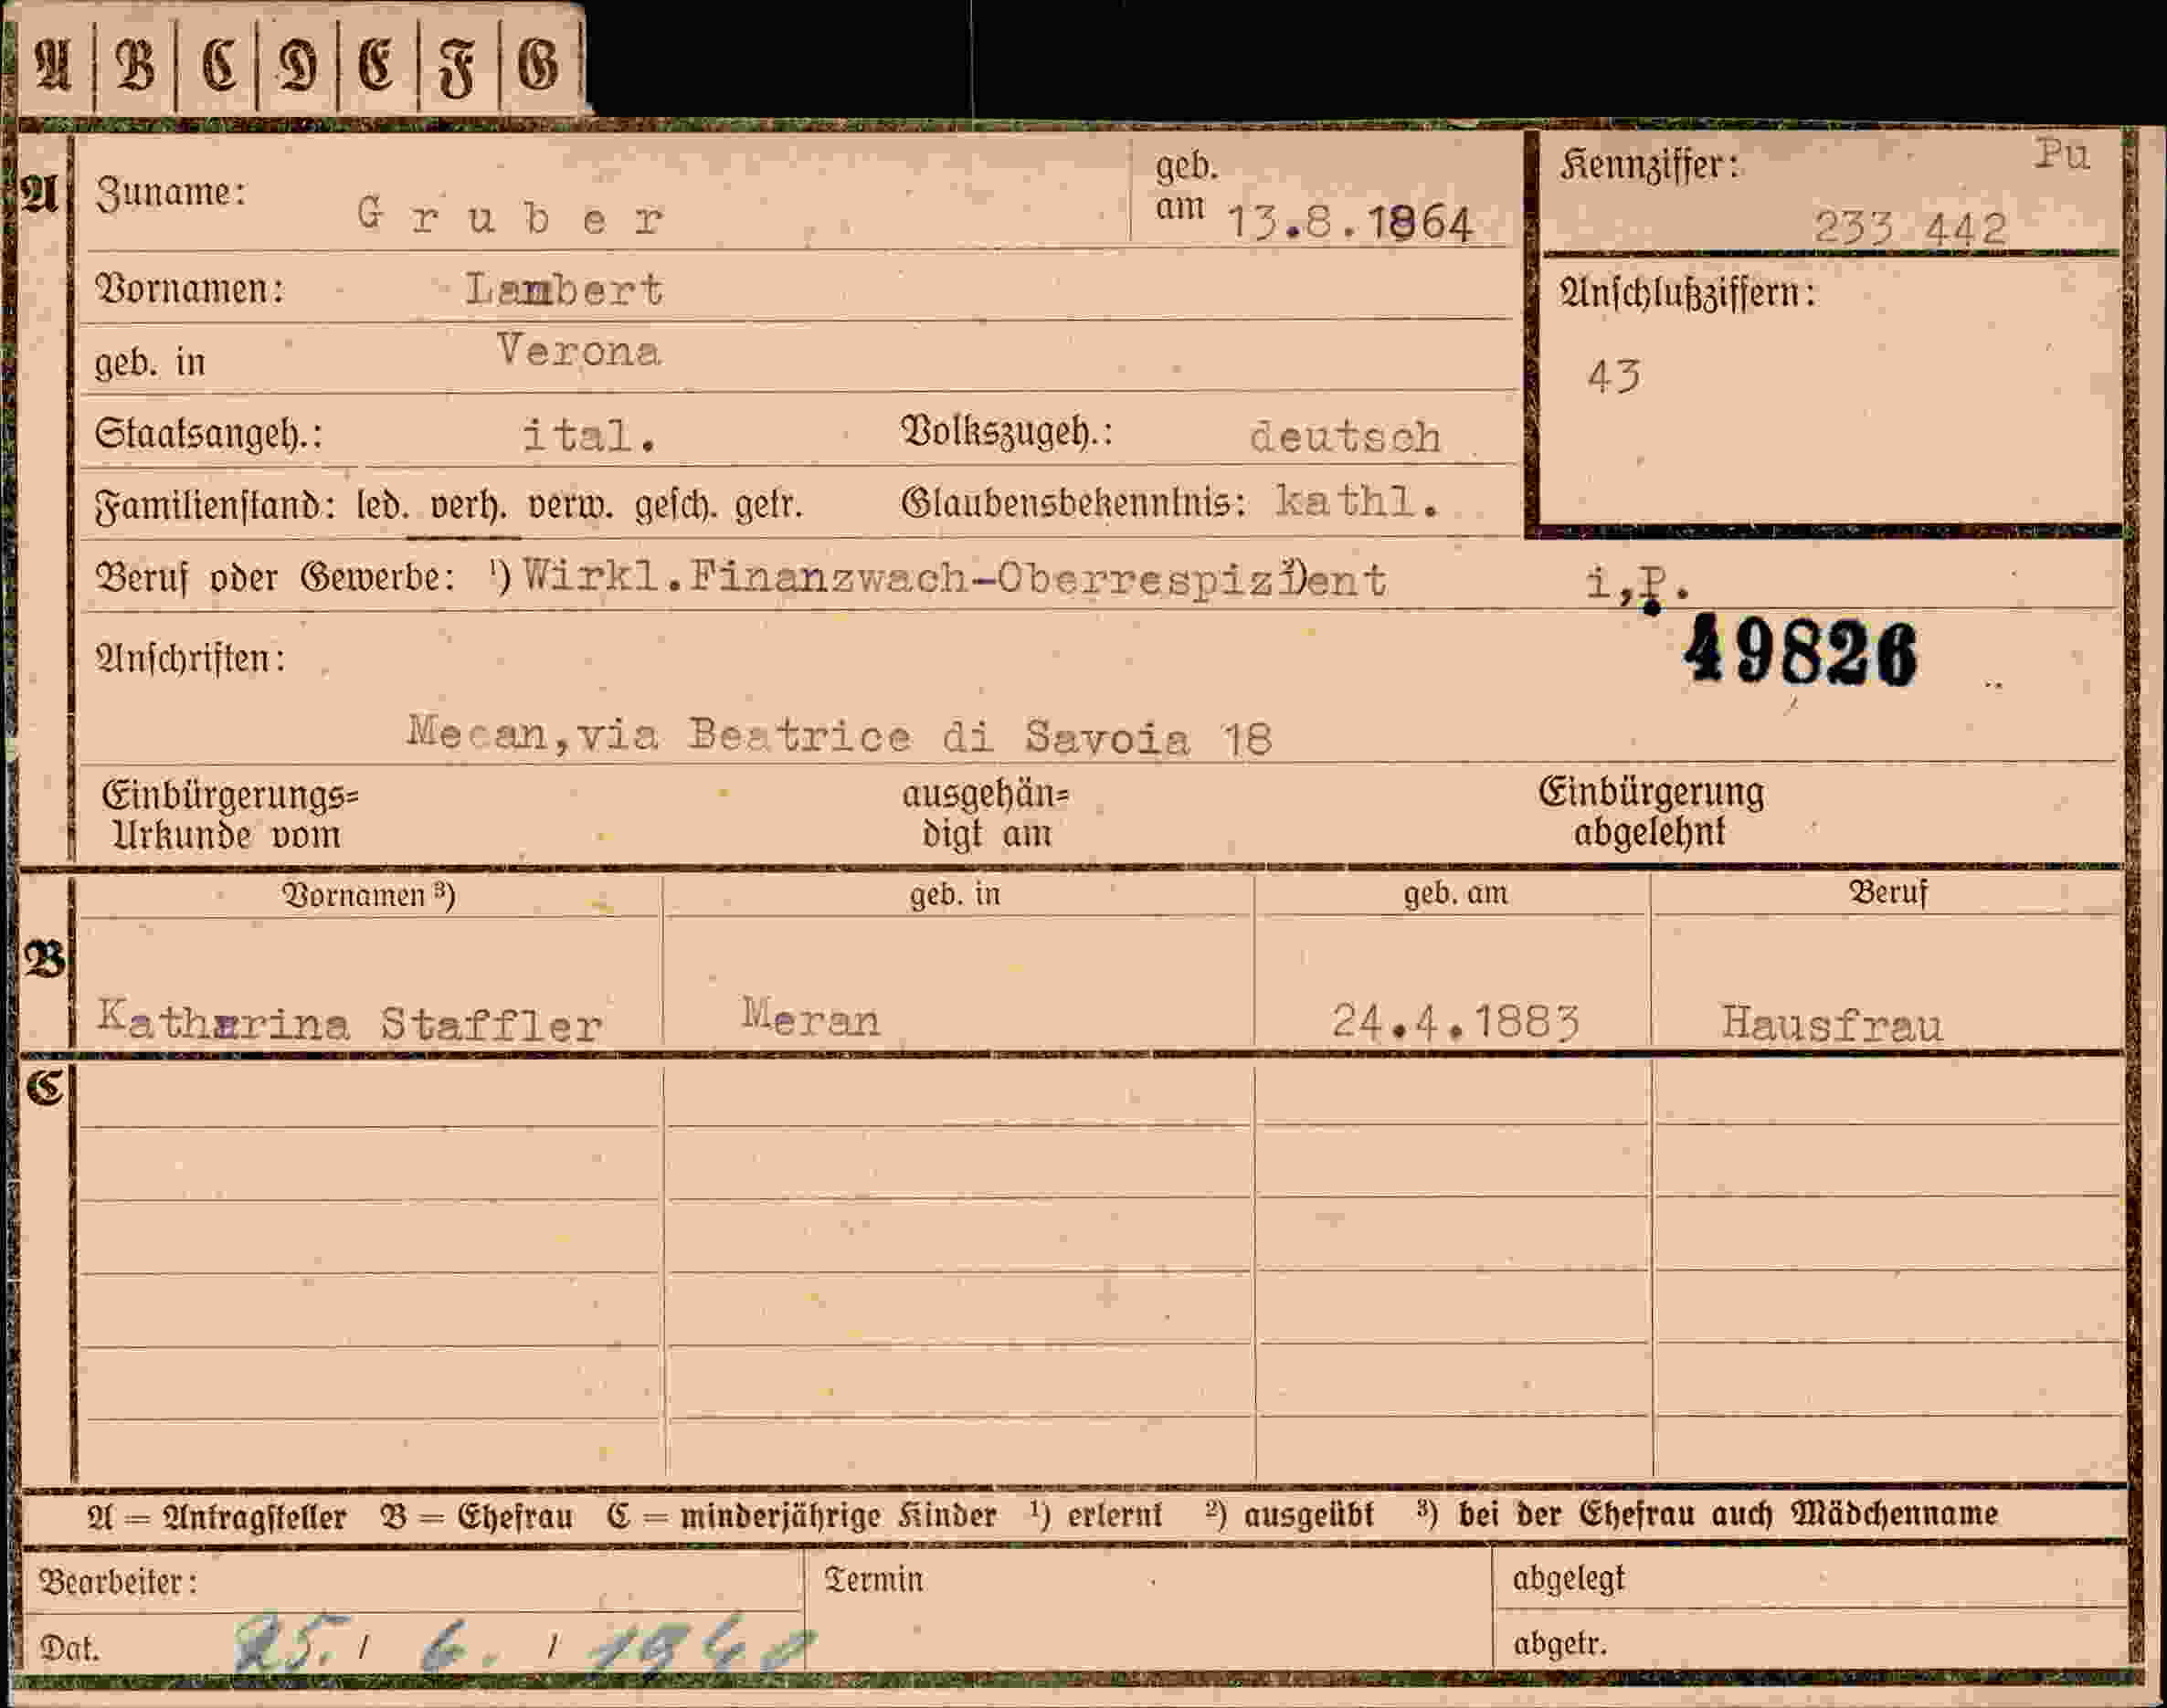 A B C D E F G
A Zuname: Gruber geb. am 13.8.1864 Kennziffer: Pu 233 442
Vornamen: Lambert Anschlußziffern:
geb. in Verona 43
Staatsangeh.: ital. Volkszugeh.: deutsch
Familienstand: led. verh. verw. gesch. getr. Glaubensbekenntnis: kathl.
Beruf oder Gewerbe: ¹) Wirkl.Finanzwach-Oberrespizident i,P.
Anschriften: 49826
Meran,via Beatrice di Savoia 18
Einbürgerungs= ausgehän= Einbürgerung
Urkunde vom digt am abgelehnt
Vornamen ³) geb. in geb. am Beruf
B
Katharina Staffler Meran 24.4.1883 Hausfrau
C
A = Antragsteller B = Ehefrau C = minderjährige Kinder ¹) erlernt ²) ausgeübt ³) bei der Ehefrau auch Mädchenname
Bearbeiter: Termin abgelegt
Dat. 25. / 6. / 1940 abgetr.